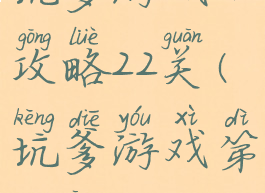 gōng lüè guān
攻略22关(
kēng diē yóu xì dì
坑爹游戏第